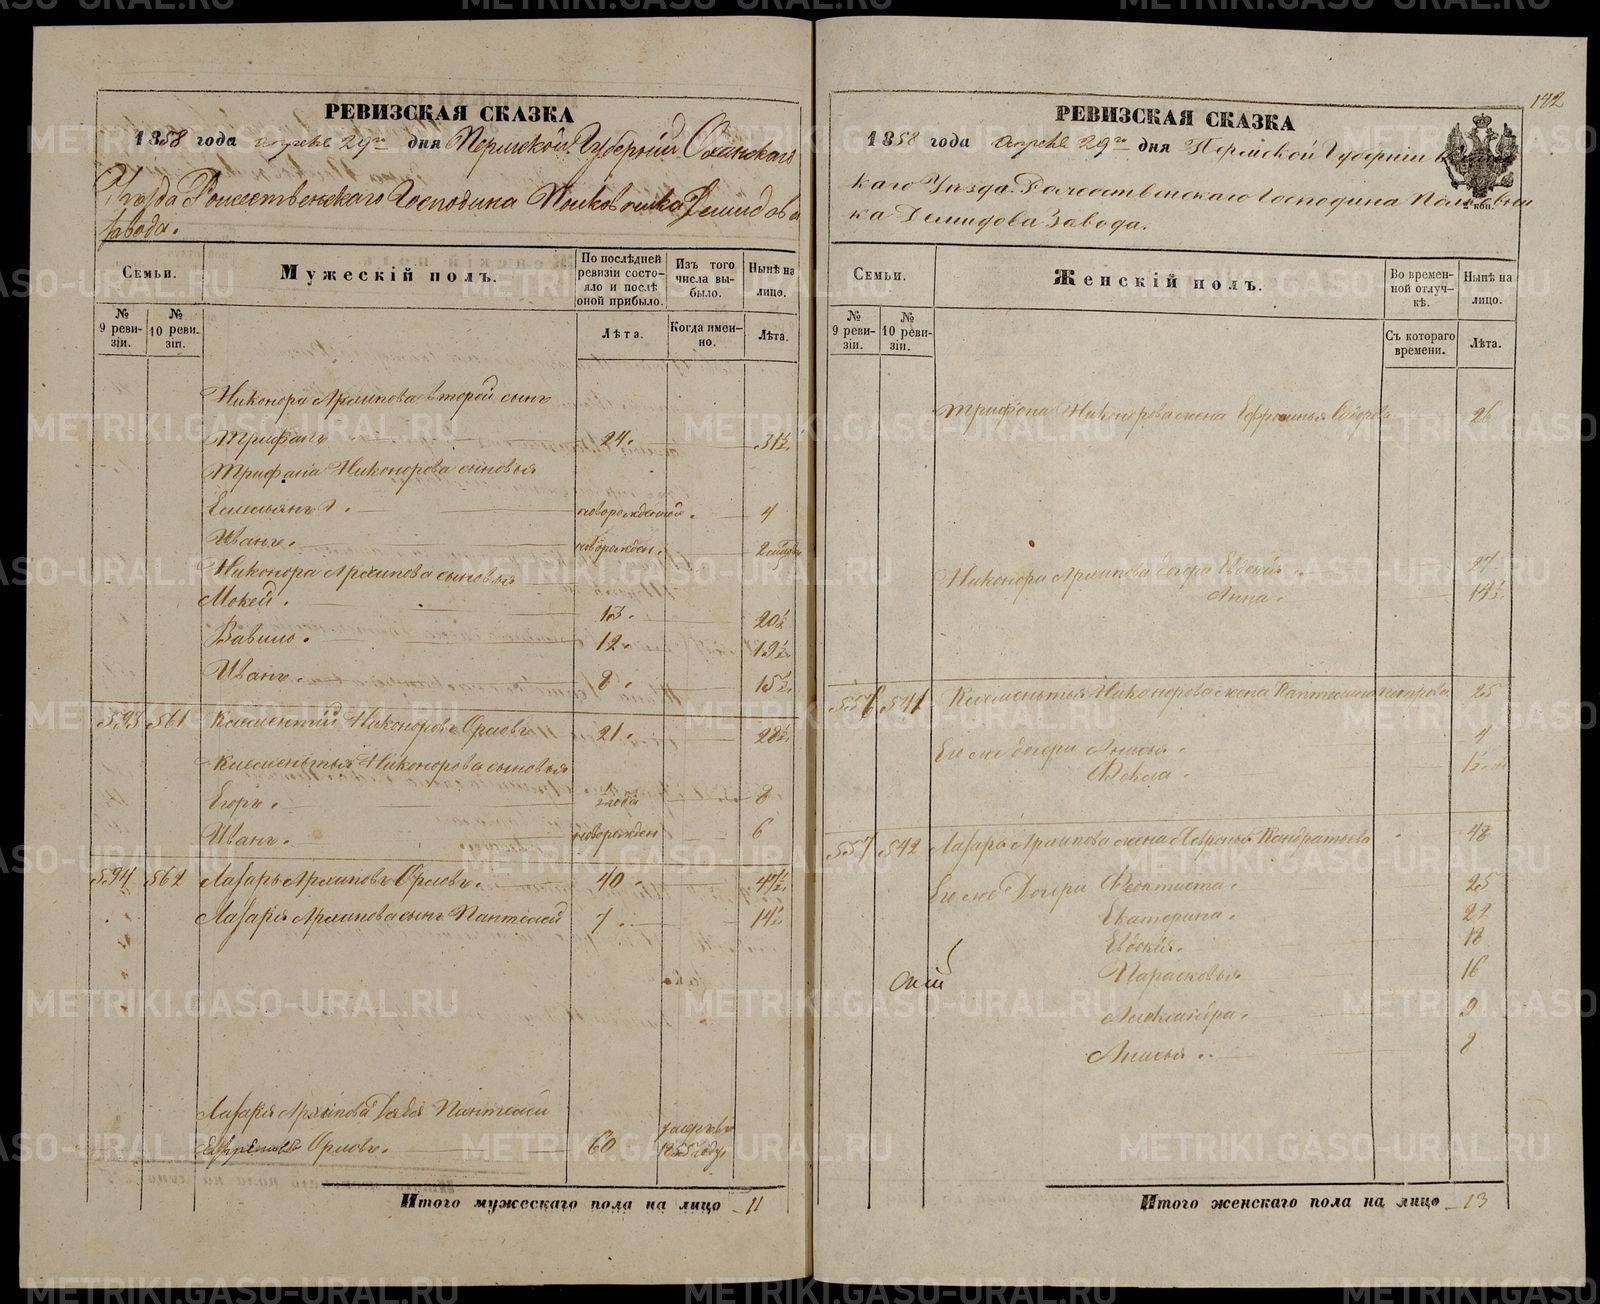 РЕВИЗСКАЯ СКАЗКА
1858 года апреля 29го дня Пермской Губернiи Оханскаго
Уезда Рожественскаго Господина Полковника Демидова
завода.
Семьи.
Мужескiй полъ.
По послѣдней ревизiи состояло и послѣ оной прибыло.
Изъ того числа выбыло.
Нынѣ на лицо.
№ 9 ревизiи.
№ 10 ревизiи.
Лѣта.
Когда именно.
Лѣта.
Никонора Архипова второй сынъ
Трифанъ 24. 31½
Трифана Никонорова сыновья
Емельянъ новорожденный. 4
Иванъ. новорожден. 2
Никонора Архипова сыновья
Мокей. 13. 20½
Вавило. 12. 19½
Иванъ. 8. 15½
593 561 Клементiй Никоноровъ Орловъ 21. 28½
Клементья Никонорова сыновья
Егоръ. ½ года 8
Иванъ. новорожден 6
594 562 Лазарь Архиповъ Орловъ. 40 47½
Лазаря Архипова сынъ Пантелей 7. 14½
Лазаря Архипова дядя Пантелей
Орловъ. 60 году
Итого мужескаго пола на лицо 11
142
РЕВИЗСКАЯ СКАЗКА
1858 года апреля 29го дня Пермской Губернiи
каго Уезда Рожественскаго Господина Полковни
ка Демидова Завода.
2 коп.
Семьи.
Женскiй полъ.
Во временной отлучкѣ.
Нынѣ на лицо.
№ 9 ревизiи.
№ 10 ревизiи.
Съ котораго времени.
Лѣта.
Трифона Никонорова жена Ефросинья 26
Никонора Архипова дочери Евдокiя. 27
Анна. 14½
556 541 Клементья Никонорова жена Петрова 25
Его же дочери Анисья. 4
Фекла. 1½
557 542 Лазаря Архипова жена Кондратьева 48
Его же Дочери Феоктиста. 25
Екатерина. 22
Евдокiя. 18
Парасковья 16
Александра. 9
Анисья.. 8
Итого женскаго пола на лицо 13
METRIKI.GASO-URAL.RU